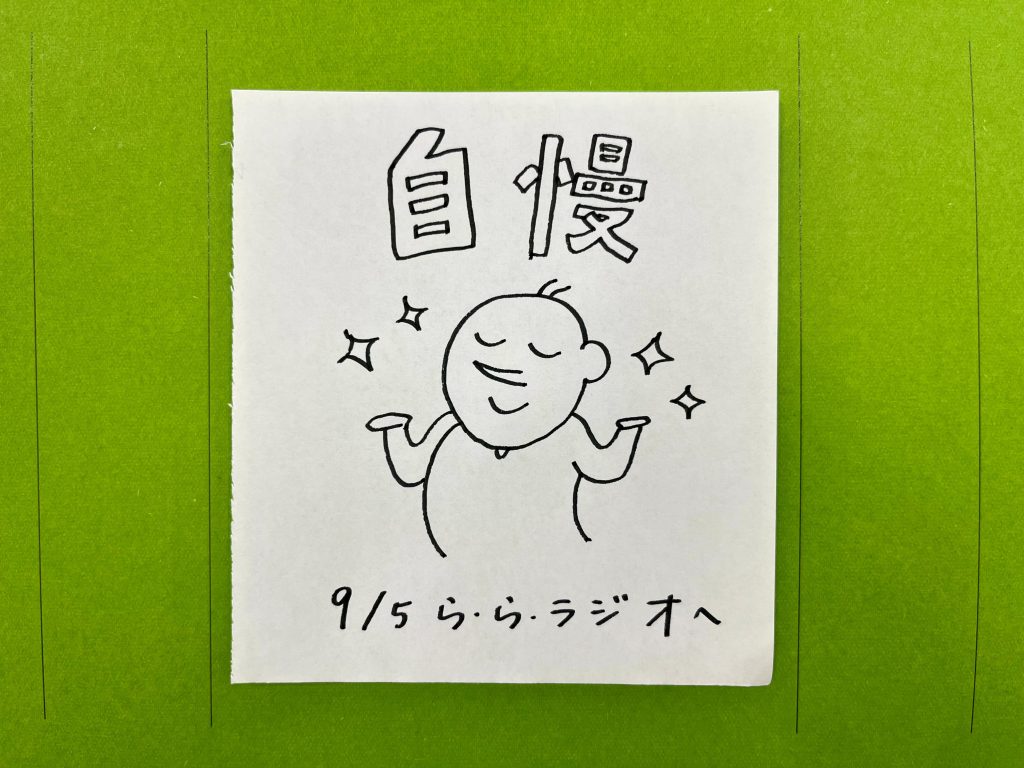 自慢
9/5 ら・ら・ラジオへ